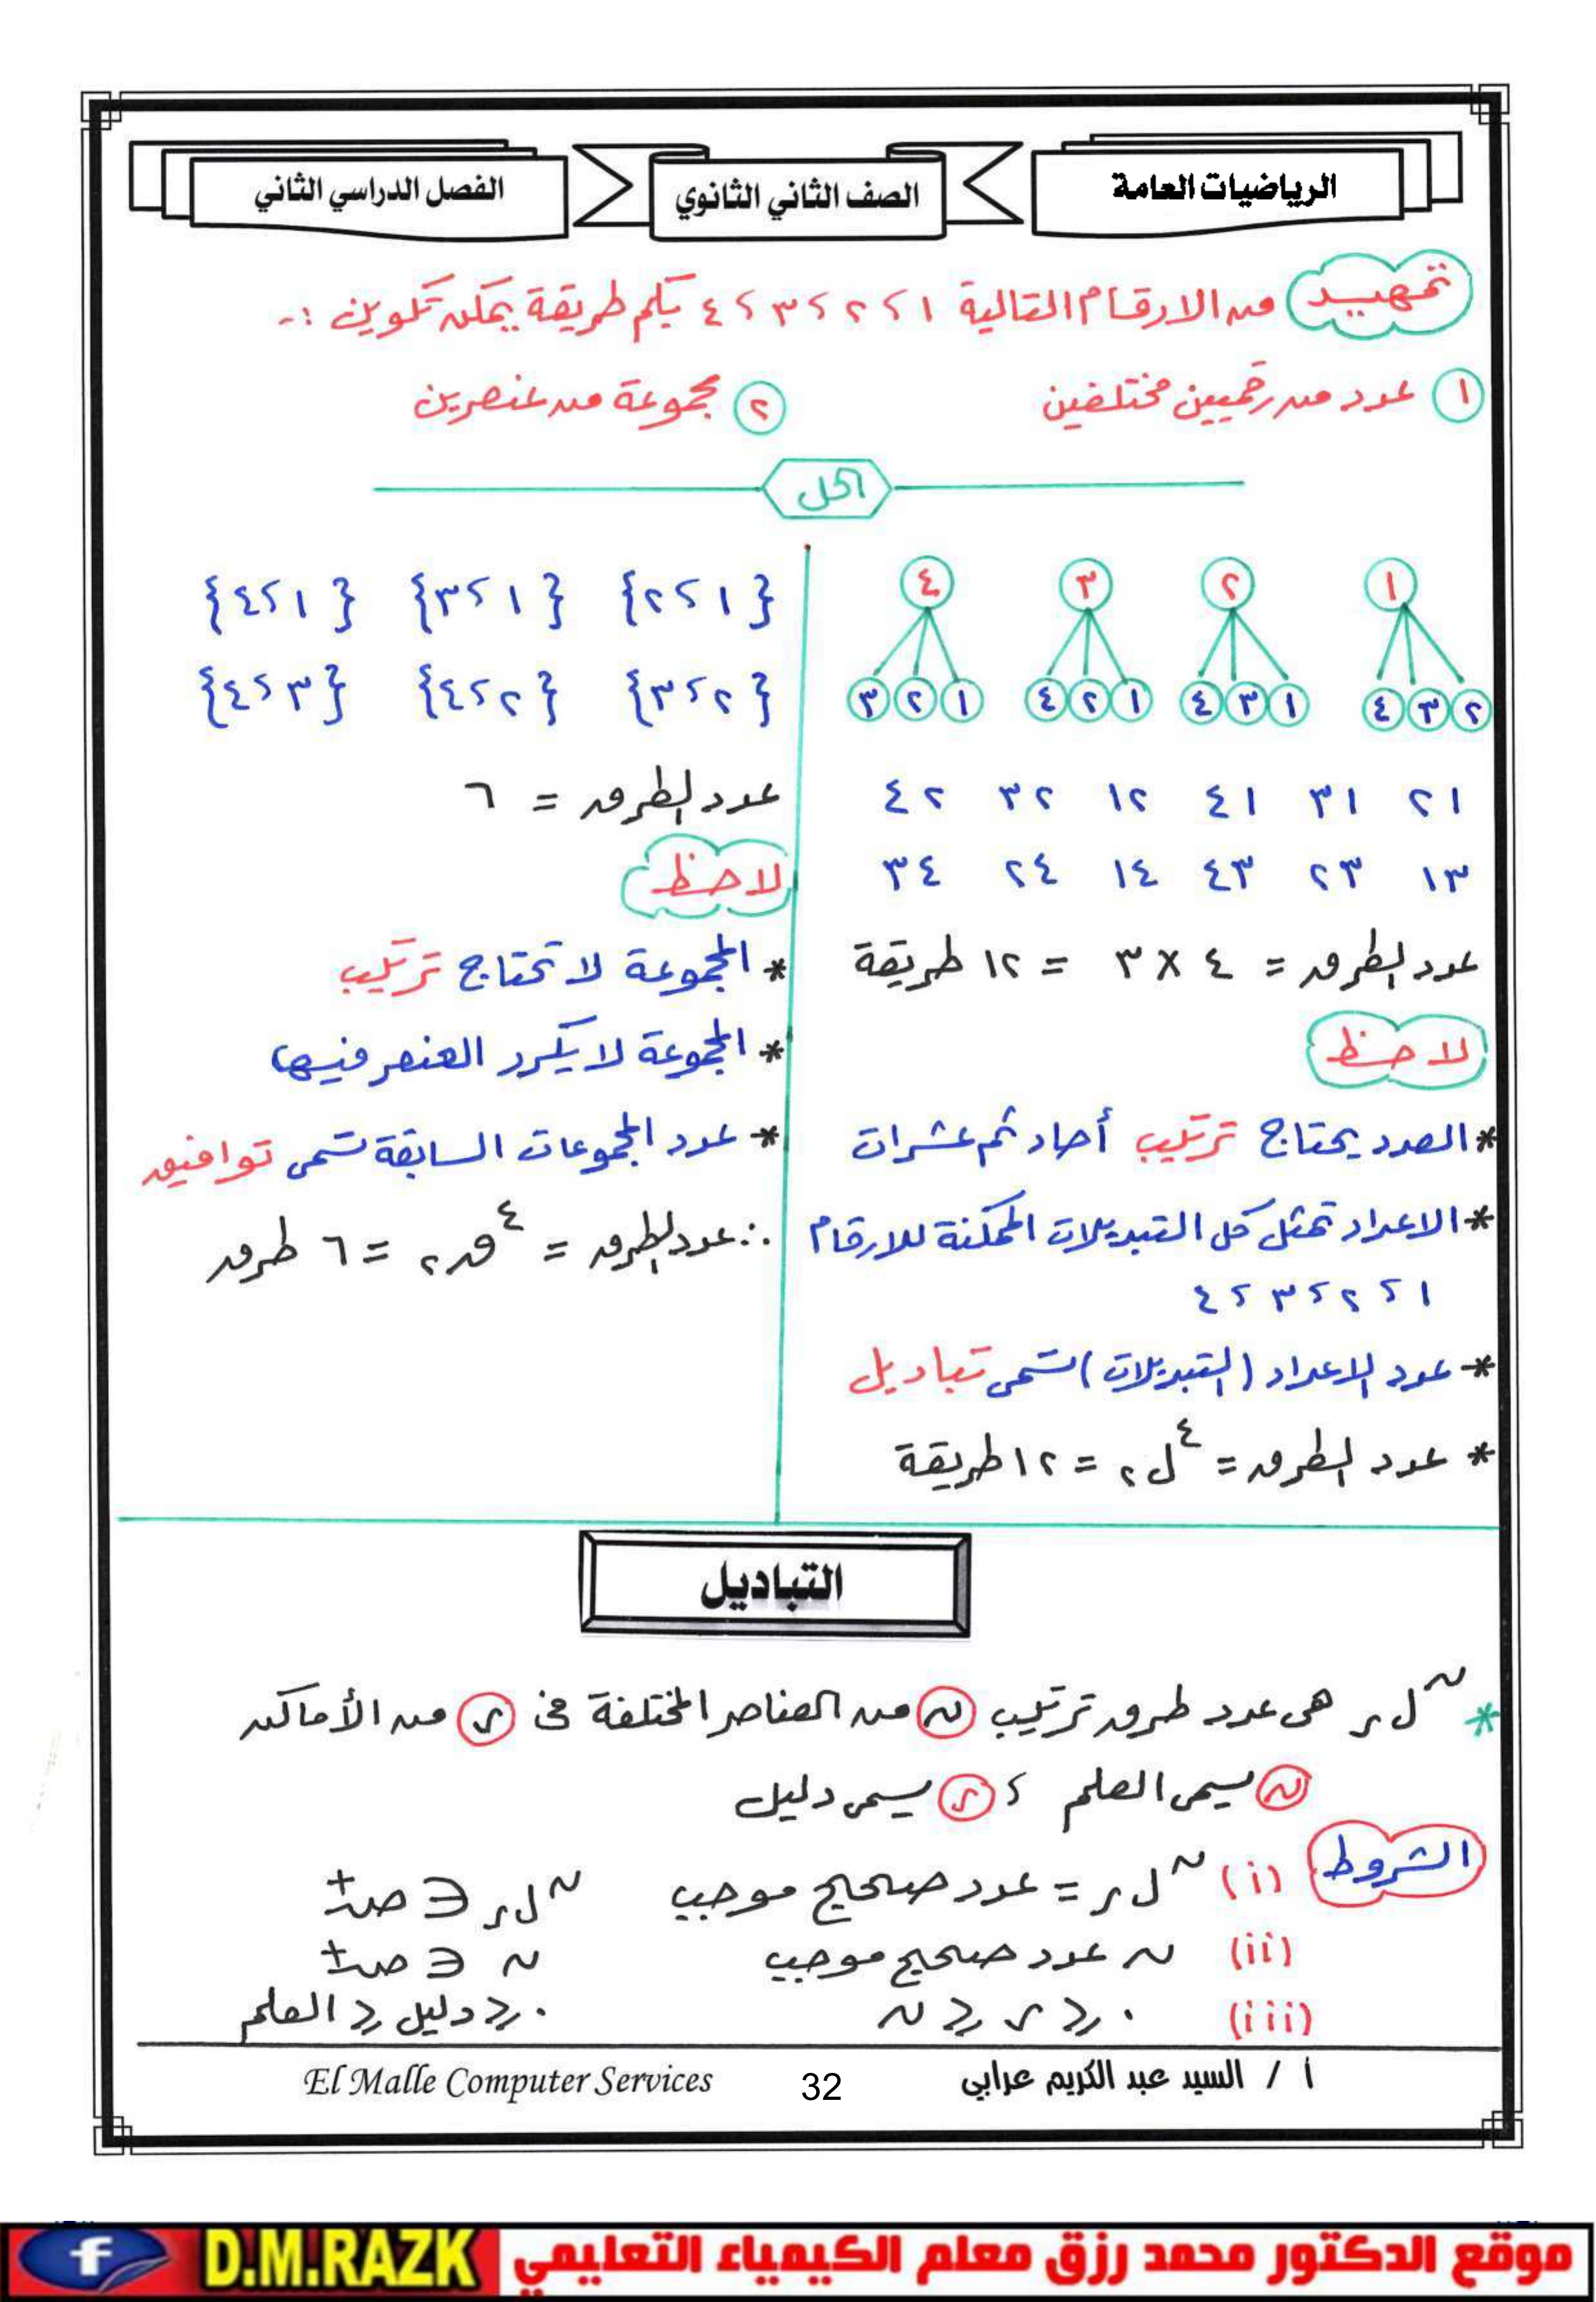 الرياضيات العامة
الصف الثاني الثانوي
الفصل الدراسي الثاني
تمهيد من الارقام التالية ١ ، ٢ ، ٣ ، ٤ بكم طريقة يمكن تكوين :-
١ عدد من رقميين مختلفين
٢ مجموعة من عنصرين
الحل
١ ٢ ٣ ٤
٢ ٣ ٤ ١ ٣ ٤ ١ ٢ ٤ ١ ٢ ٣
٢١ ٣١ ٤١ ١٢ ٣٢ ٤٢
١٣ ٢٣ ٤٣ ١٤ ٢٤ ٣٤
عدد الطرق = ٤ × ٣ = ١٢ طريقة
لاحظ
* العدد يحتاج ترتيب أحاد ثم عشرات
* الاعداد تمثل كل التبديلات الممكنة للارقام
١ ، ٢ ، ٣ ، ٤
* عدد الاعداد (التبديلات) تسمى تباديل
* عدد الطرق = ⁴ل₂ = ١٢ طريقة
{١ ، ٢} {١ ، ٣} {١ ، ٤}
{٢ ، ٣} {٢ ، ٤} {٣ ، ٤}
عدد الطرق = ٦
لاحظ
* المجموعة لا تحتاج ترتيب
* المجموعة لا يكرر العنصر فيها
* عدد المجموعات السابقة تسمى توافيق
∴ عدد الطرق = ⁴ق₂ = ٦ طرق
التباديل
* ⁿلر هى عدد طرق ترتيب ن من العناصر المختلفة فى ر من الأماكن
ن يسمى العلم ، ر يسمى دليل
الشروط (i) ⁿلر = عدد صحيح موجب ⁿلر ∈ ص+
(ii) ن عدد صحيح موجب ن ∈ ص+
(iii) ٠ ≤ ر ≤ ن ٠ ≤ دليل ≤ العلم
أ / السيد عبد الكريم عرابي
32
El Malle Computer Services
موقع الدكتور محمد رزق معلم الكيمياء التعليمي
D.M.RAZK
f